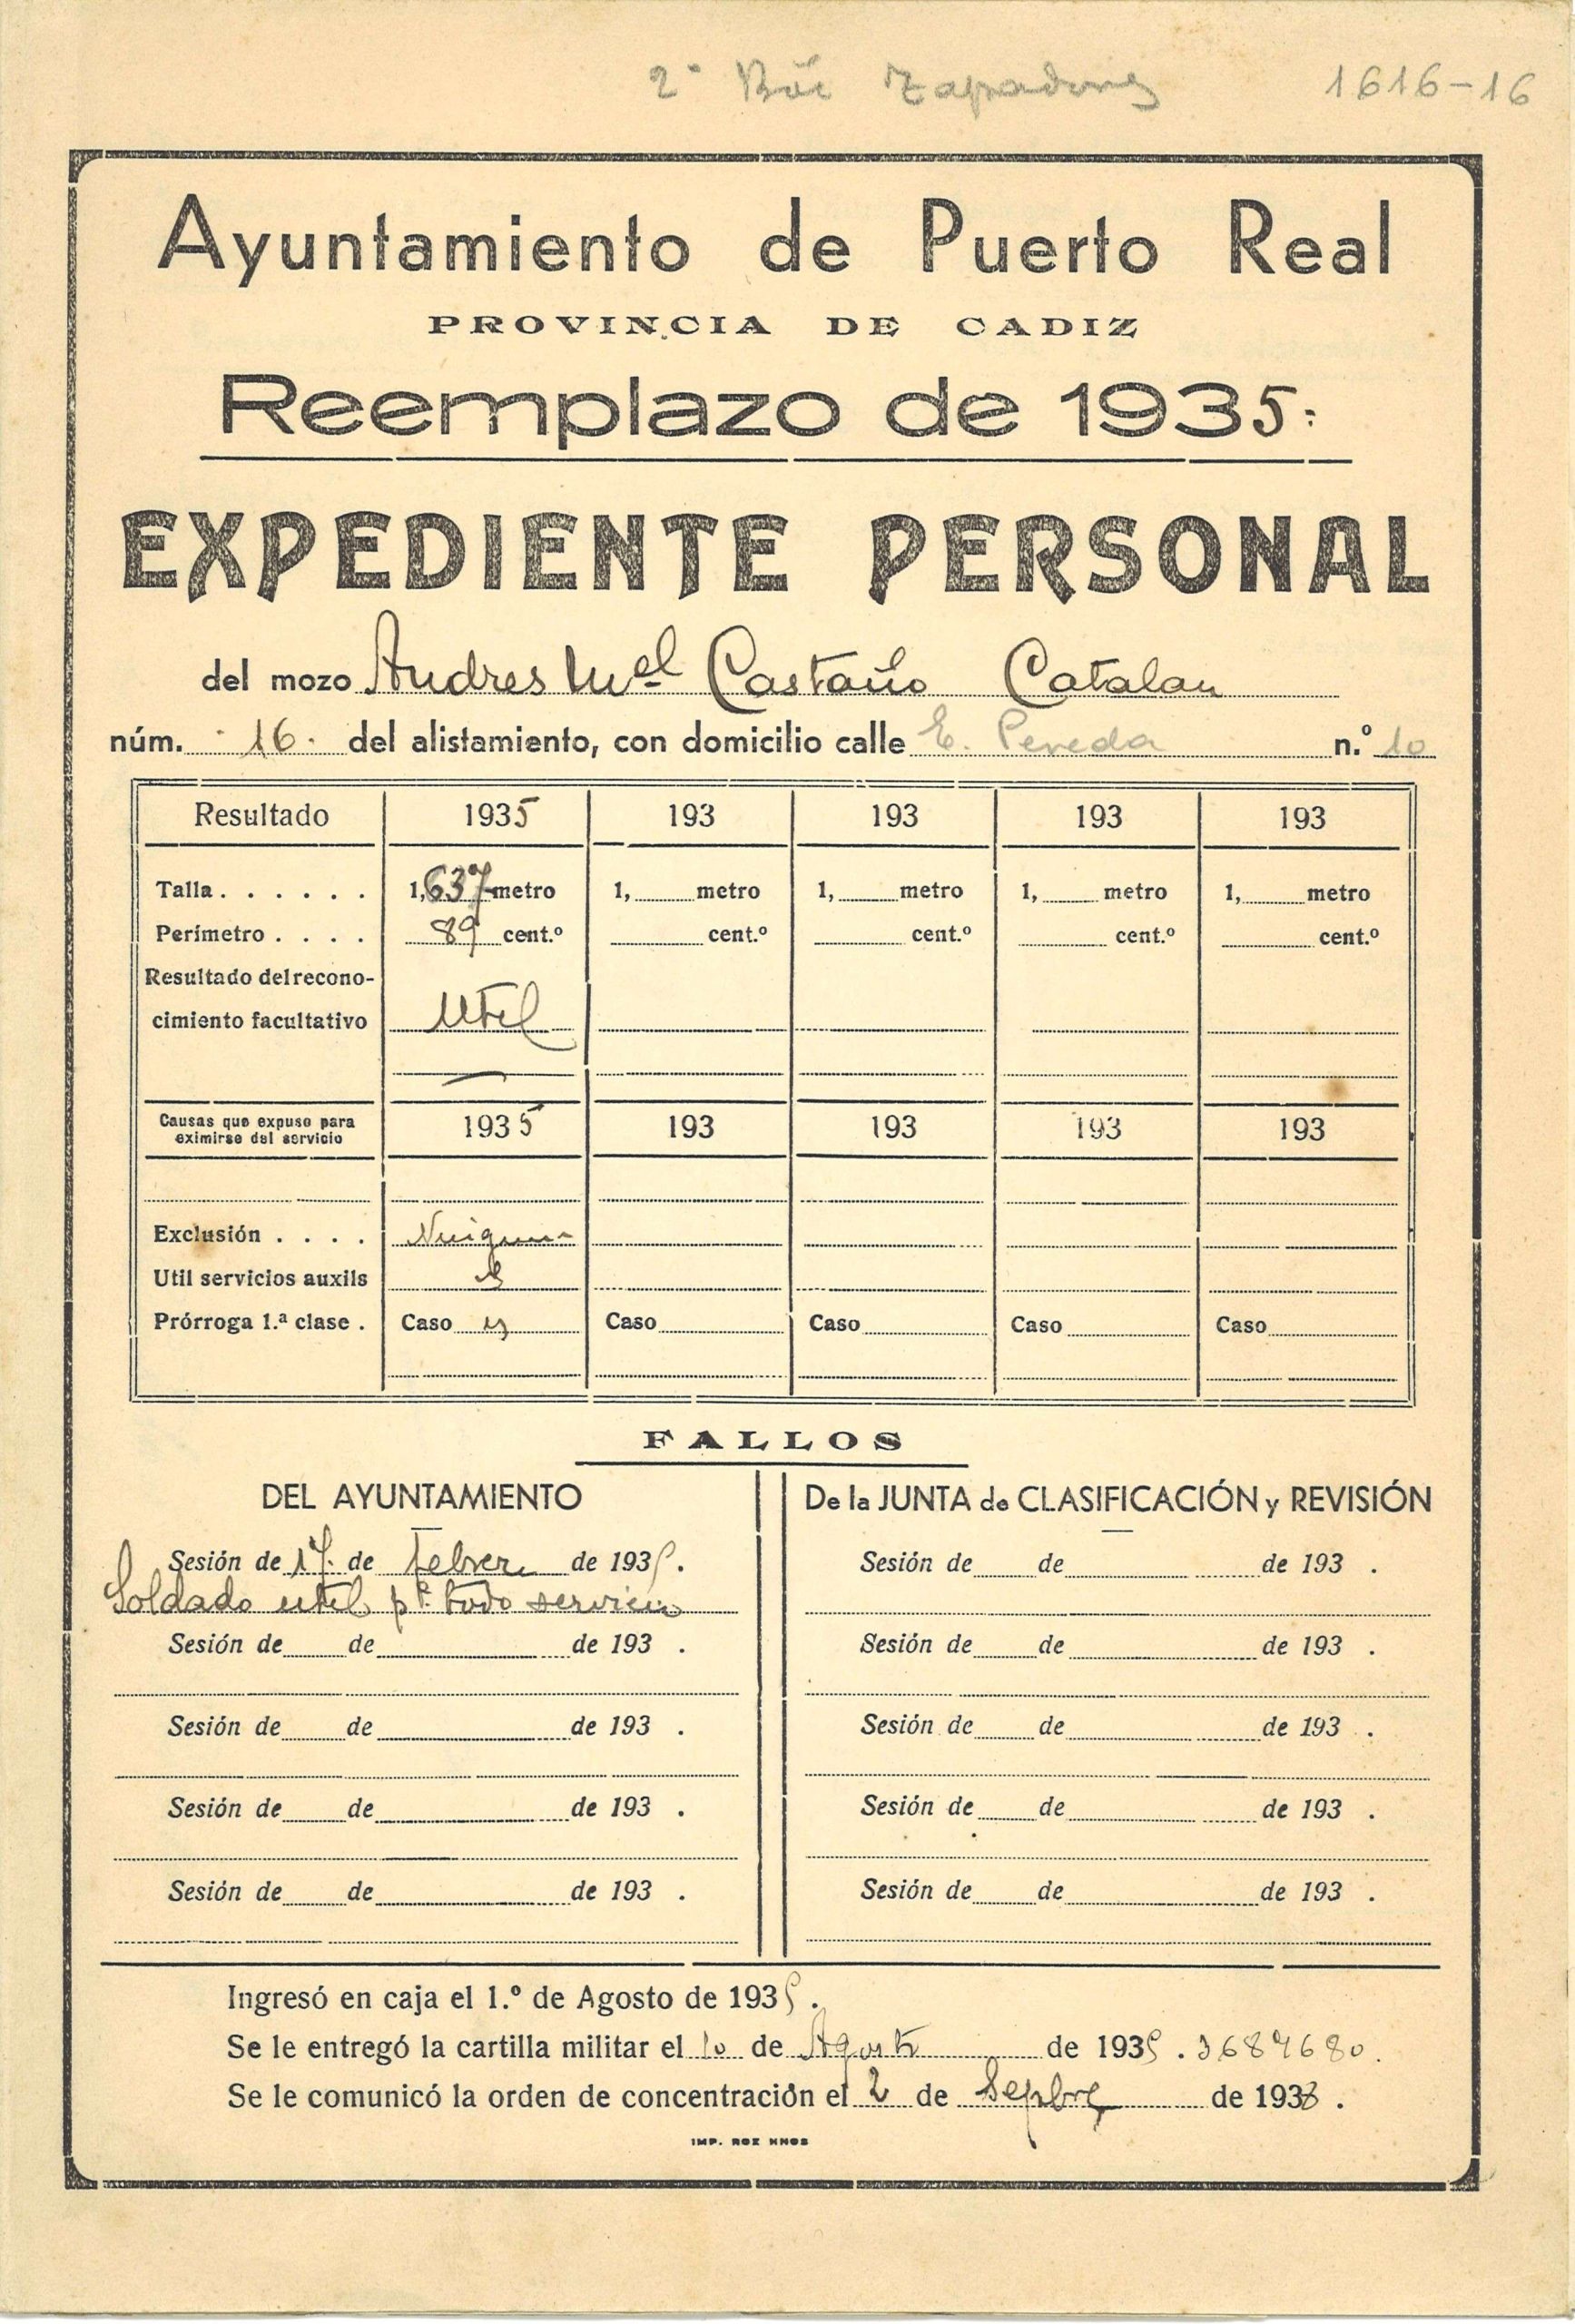 2º Bón Zapadores 1616-16
Ayuntamiento de Puerto Real
PROVINCIA DE CADIZ
Reemplazo de 1935.
EXPEDIENTE PERSONAL
del mozo Andres Mel Castaño Catalan
núm. 16. del alistamiento, con domicilio calle E. Pereda n.º 10
Resultado 1935 193 193 193 193
Talla. . . . . . 1,637 metro 1, metro 1, metro 1, metro 1, metro
Perímetro . . . . 89 cent.º cent.º cent.º cent.º cent.º
Resultado del recono-
cimiento facultativo Util
Causas que expuso para
eximirse del servicio 1935 193 193 193 193
Exclusión . . . . Ninguna
Util servicios auxils
Prórroga 1.ª clase . Caso Caso Caso Caso Caso
FALLOS
DEL AYUNTAMIENTO De la JUNTA de CLASIFICACIÓN y REVISIÓN
Sesión de 17. de Febrero de 1935. Sesión de de de 193 .
Soldado util pª todo servicio
Sesión de de de 193 . Sesión de de de 193 .
Sesión de de de 193 . Sesión de de de 193 .
Sesión de de de 193 . Sesión de de de 193 .
Sesión de de de 193 . Sesión de de de 193 .
Ingresó en caja el 1.º de Agosto de 1935.
Se le entregó la cartilla militar el 10 de Agosto de 1935. 3687680.
Se le comunicó la orden de concentración el 2 de Sepbre de 193
IMP. ROZ HNOS